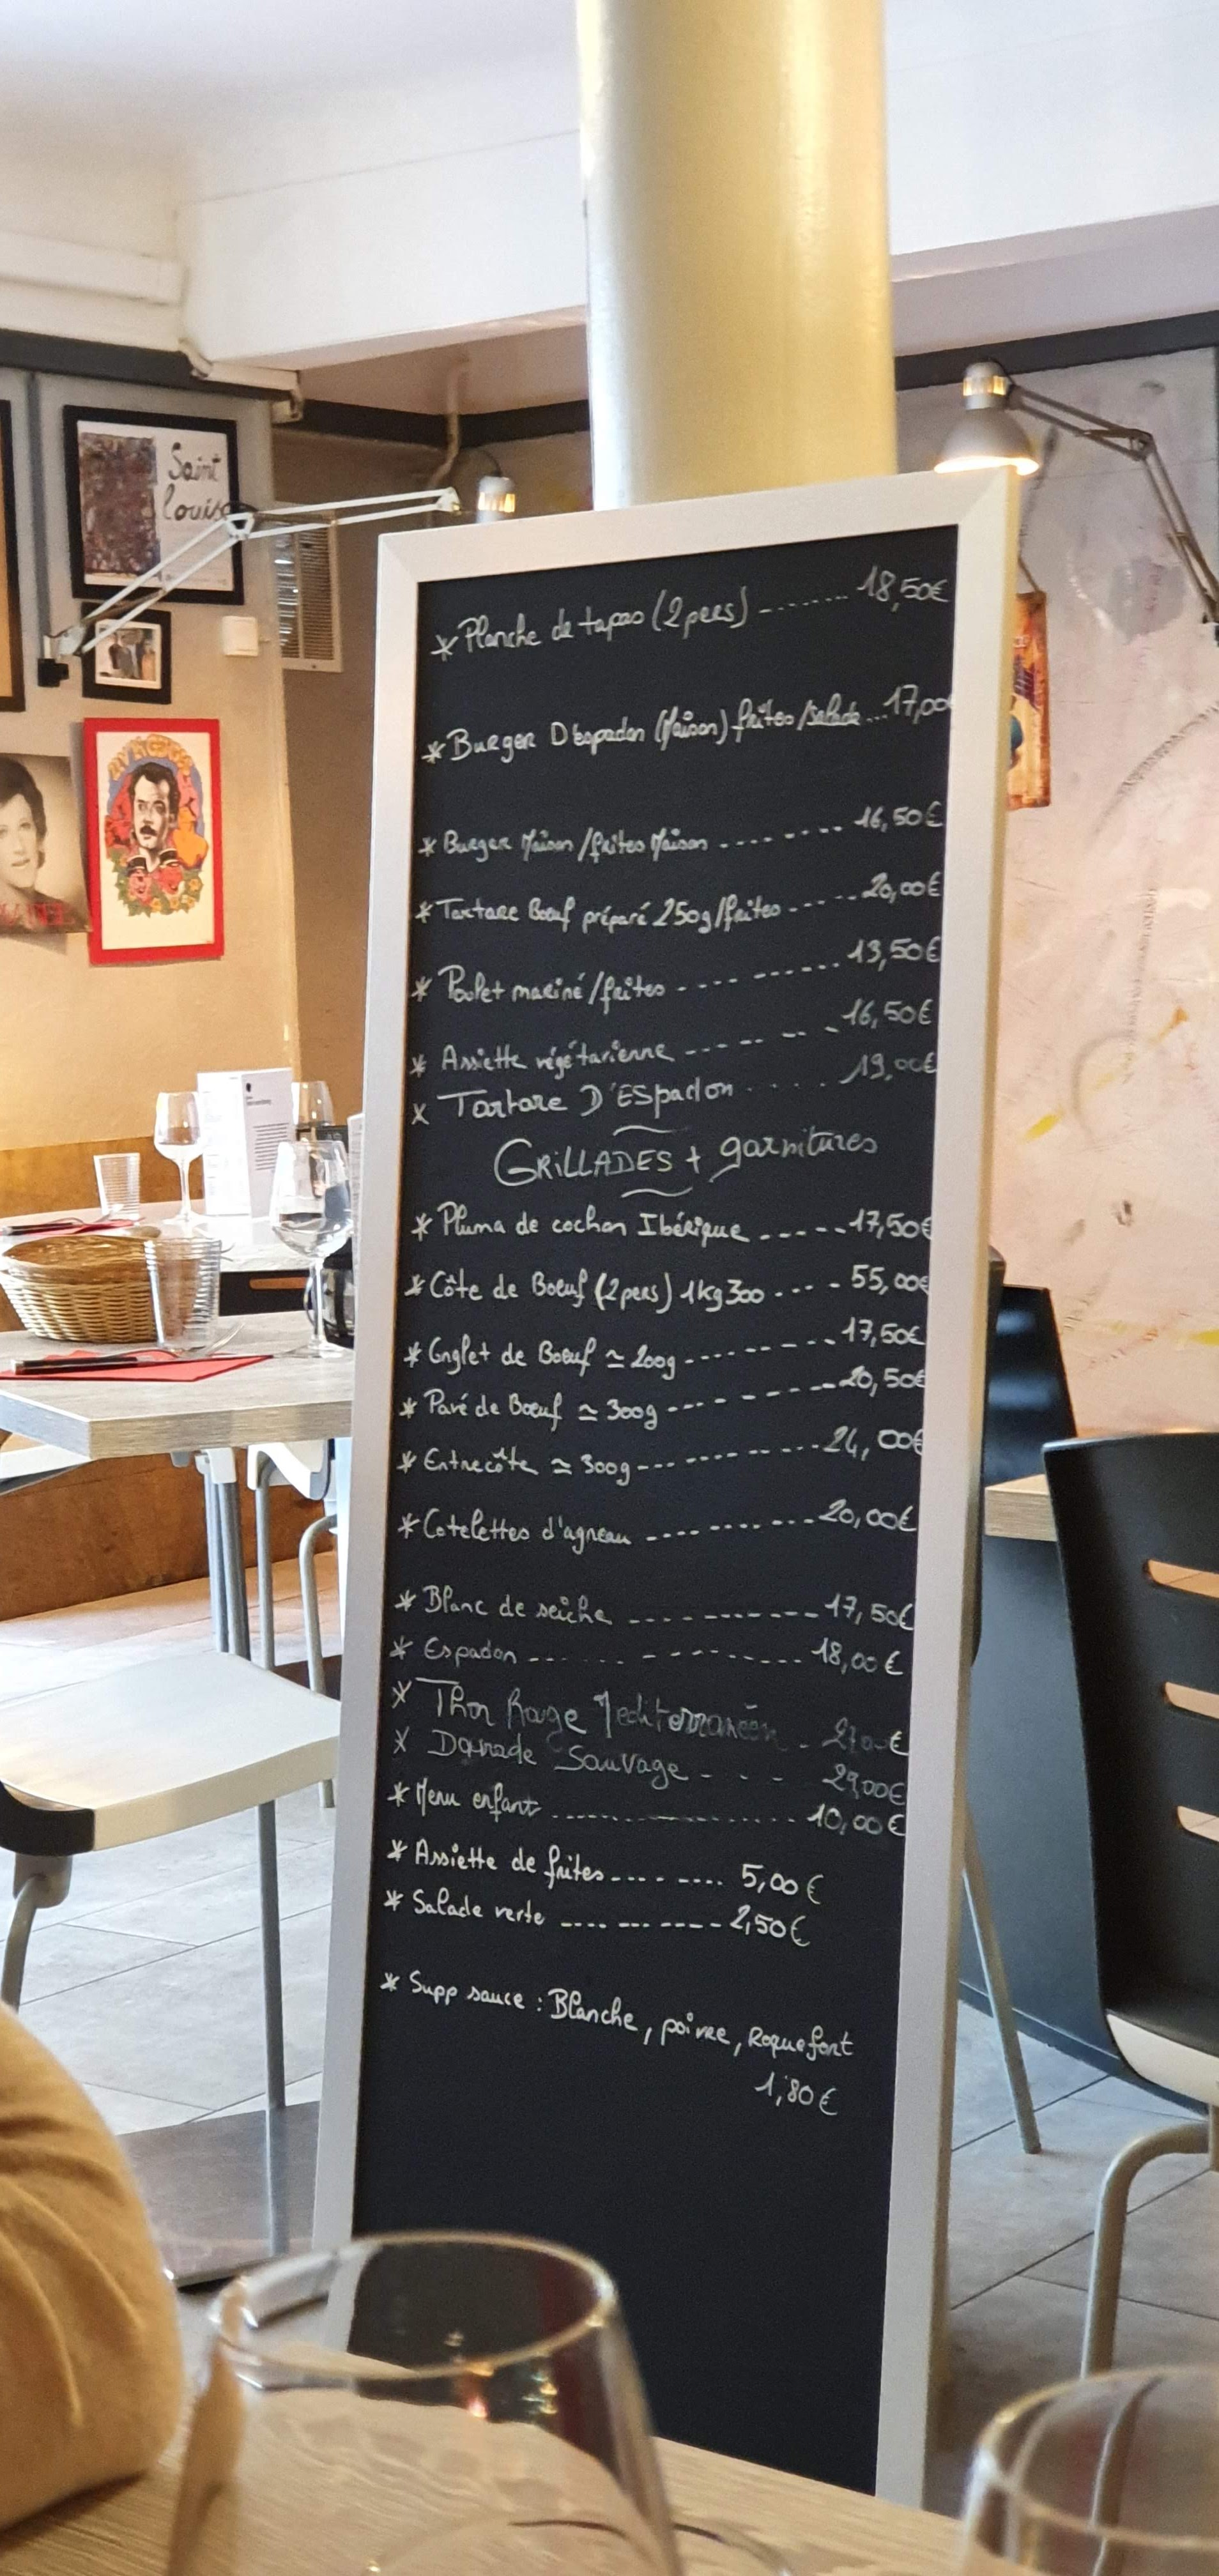 Saint
Louis
* Planche de tapas (2pers) -------- 18,50€
* Burger D'espadon (Maison) frites/salade... 17,00€
* Burger Maison/frites Maison -------- 16,50€
* Tartare Boeuf préparé 250g/frites ------ 20,00€
* Poulet mariné/frites - ---------- 13,50€
* Assiette végétarienne -------- 16,50€
x Tartare D'ESpadon ...... 19,00€
GRILLADES + garnitures
* Pluma de cochon Ibérique ----- 17,50€
* Côte de Boeuf (2pers) 1kg300 ---- 55,00€
* Onglet de Boeuf ≃ 200g ----------- 17,50€
* Pavé de Boeuf ≃ 300g ----------- 20,50€
* Entrecôte ≃ 300g ------------ 24,00€
* Cotelettes d'agneau ----------- 20,00€
* Blanc de seiche ------------- 17,50€
* Espadon ----------------- 18,00€
X Thon Rouge Mediterranéen -
X Daurade Sauvage - - - 29,00€
* Menu enfant ---------------- 10,00€
* Assiette de frites--------- 5,00€
* Salade verte ----------- 2,50€
* Supp sauce : Blanche, poivre, Roquefort
1,80€